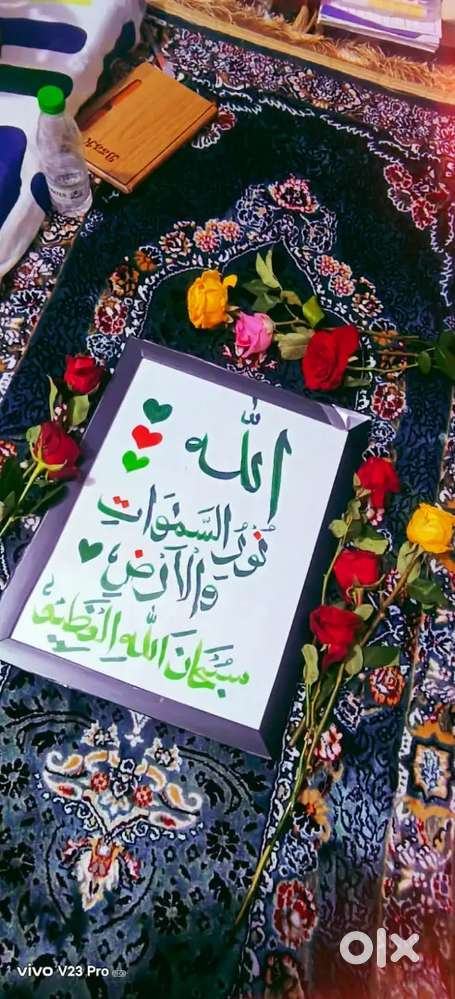 الله
نُورُ السَّمَوَاتِ
وَالْأَرْضِ
سُبْحَانَ اللهِ الْعَظِيْمِ
vivo V23 Pro
olx